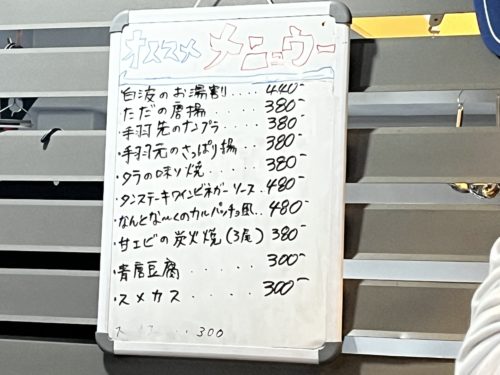 オススメ メニュウー
・白波のお湯割....440-
・ただの唐揚....380-
・手羽先のナンプラ.....380-
・手羽元のさっぱり揚...380-
・タラの味噌焼.....380-
・タンステーキワインビネガーソース..480-
・なんとな〜くのカルパッチョ風..480-
・甘エビの炭火焼(3尾)380-
・青唐豆腐.....300-
・スメカス.....300-
300